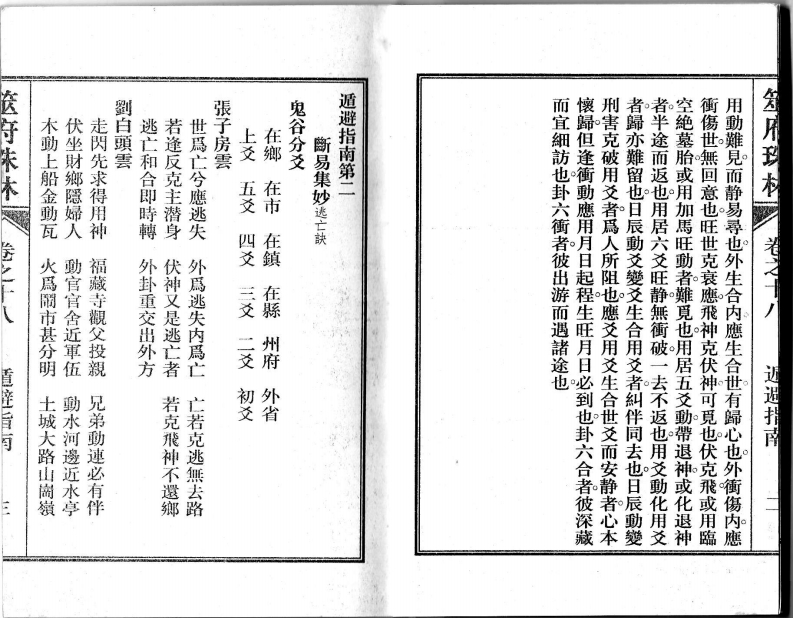 筮府珠林
卷之十八
遁避指南
二
用動難見。而静易尋也。外生合内。應生合世。有歸心也。外衝傷内。應
衝傷世。無回意也。旺世克衰應。飛神克伏神。可覓也。伏克飛。或用臨
空絶墓胎。或用加馬旺動者。難覓也。用居五爻。動帶退神。或化退神
者。半途而返也。用居六爻旺静。無衝破。一去不返也。用爻動化用爻
者。歸亦難留也。日辰動爻變爻生合用爻者。糾伴同去也。日辰動變
刑害克破用爻者。爲人所阻也。應爻用爻生合世爻而安静者。心本
懷歸。但逢衝動。應用月日起程。生旺月日必到也。卦六合者。彼深藏
而宜細訪也。卦六衝者。彼出游而遇諸途也。
遁避指南第二
斷易集妙逃亡訣
鬼谷分爻
在鄉　在市　在鎮　在縣　州府　外省
上爻　五爻　四爻　三爻　二爻　初爻
張子房雲
世爲亡兮應逃失　外爲逃失内爲亡　亡若克逃無去路
若逢反克主潜身　伏神又是逃亡者　若克飛神不還鄉
逃亡和合即時轉　外卦重交出外方
劉白頭雲
走閃先求得用神　福藏寺觀父投親　兄弟動連必有伴
伏坐財鄉隱婦人　動官官舍近軍伍　動水河邊近水亭
木動上船金動瓦　火爲鬧市甚分明　土城大路山崗嶺
筮府珠林
卷之十八
遁避指南
三